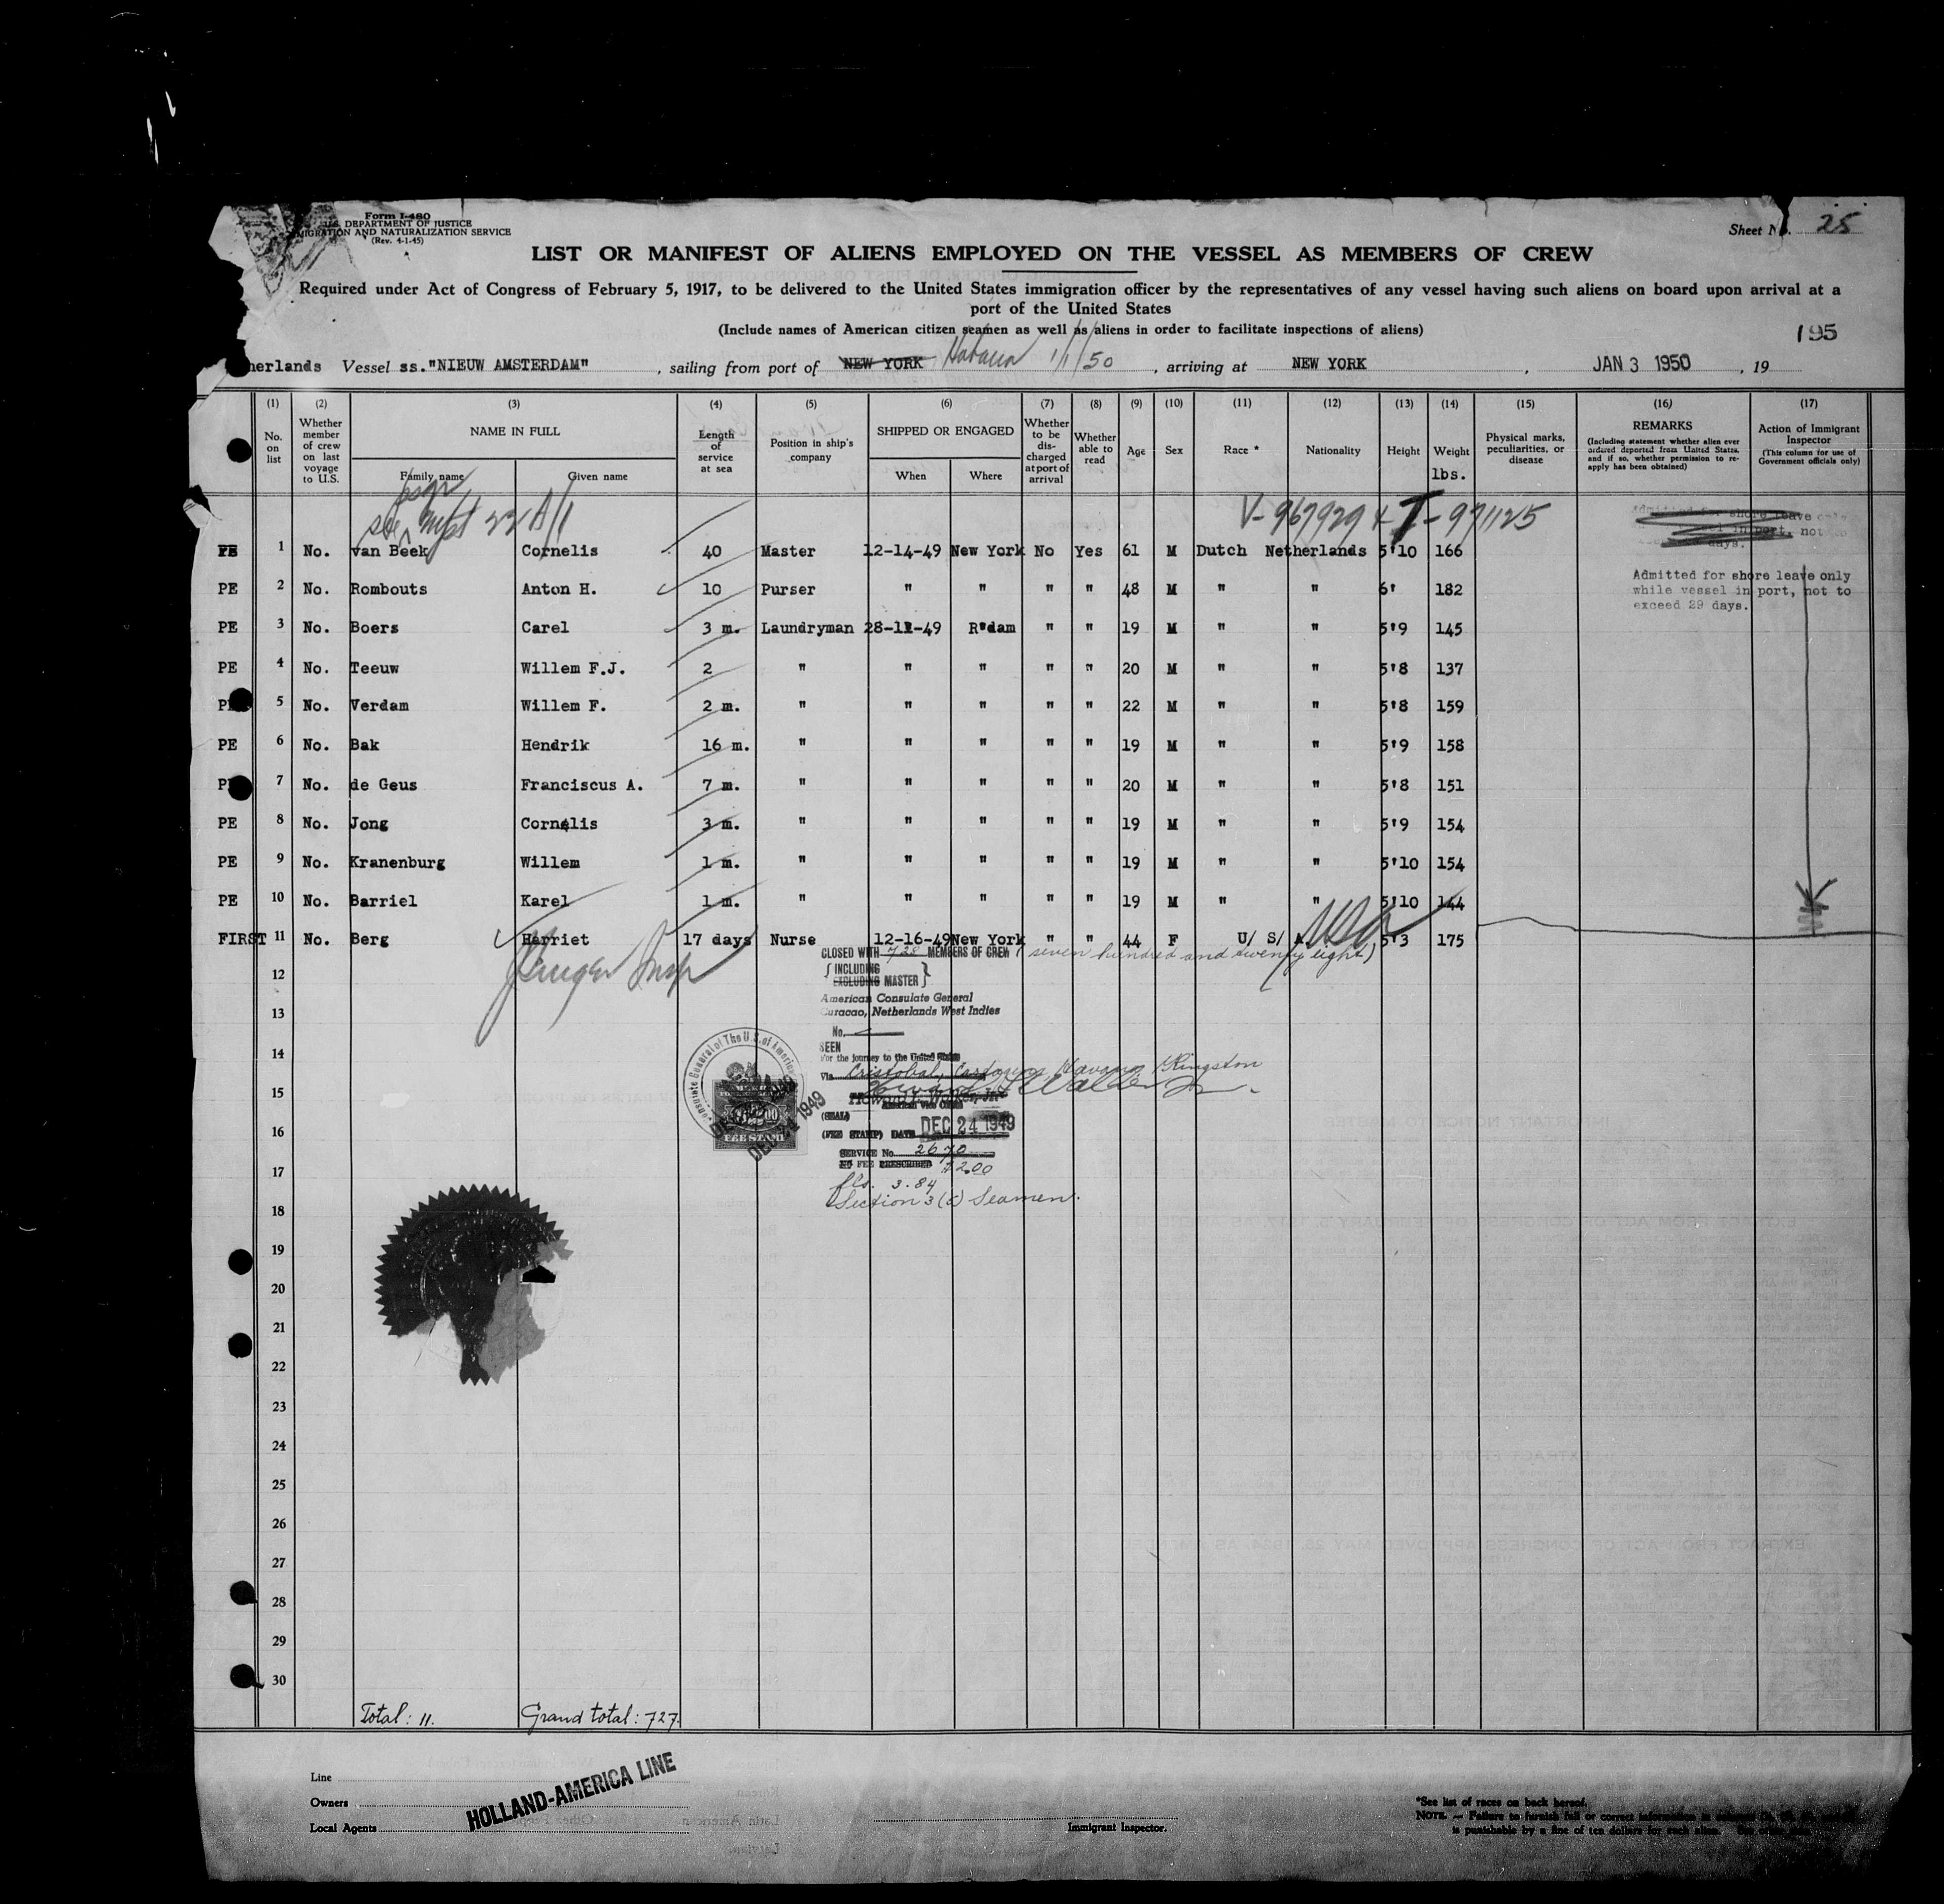 Form I-480
U.S. DEPARTMENT OF JUSTICE
MIGRATION AND NATURALIZATION SERVICE
(Rev. 4-1-45)
Sheet No. 25
LIST OR MANIFEST OF ALIENS EMPLOYED ON THE VESSEL AS MEMBERS OF CREW
Required under Act of Congress of February 5, 1917, to be delivered to the United States immigration officer by the representatives of any vessel having such aliens on board upon arrival at a
port of the United States
(Include names of American citizen seamen as well as aliens in order to facilitate inspections of aliens)
195
herlands Vessel ss. "NIEUW AMSTERDAM" , sailing from port of NEW YORK Havana 1/1/50 , arriving at NEW YORK , JAN 3 1950 , 19
(1) (2) (3) (4) (5) (6) (7) (8) (9) (10) (11) (12) (13) (14) (15) (16) (17)
No. on list
Whether member of crew on last voyage to U.S.
NAME IN FULL
Family name Given name
Length of service at sea
Position in ship's company
SHIPPED OR ENGAGED
When Where
Whether to be discharged at port of arrival
Whether able to read
Age Sex Race * Nationality Height Weight lbs.
Physical marks, peculiarities, or disease
REMARKS
(Including statement whether alien ever ordered deported from United States, and if so, whether permission to reapply has been obtained)
Action of Immigrant Inspector
(This column for use of Government officials only)
V-967929 & T-971125
PE 1 No. van Beek Cornelis 40 Master 12-14-49 New York No Yes 61 M Dutch Netherlands 5'10 166
PE 2 No. Rombouts Anton H. 10 Purser " " " " 48 M " " 6' 182
Admitted for shore leave only
while vessel in port, not to
exceed 29 days.
PE 3 No. Boers Carel 3 m. Laundryman 28-12-49 R'dam " " 19 M " " 5'9 145
PE 4 No. Teeuw Willem F.J. 2 " " " " " 20 M " " 5'8 137
PE 5 No. Verdam Willem F. 2 m. " " " " " 22 M " " 5'8 159
PE 6 No. Bak Hendrik 16 m. " " " " " 19 M " " 5'9 158
PE 7 No. de Geus Franciscus A. 7 m. " " " " " 20 M " " 5'8 151
PE 8 No. Jong Cornelis 3 m. " " " " " 19 M " " 5'9 154
PE 9 No. Kranenburg Willem 1 m. " " " " " 19 M " " 5'10 154
PE 10 No. Barriel Karel 1 m. " " " " " 19 M " " 5'10 144
FIRST 11 No. Berg Harriet 17 days Nurse 12-16-49 New York " " 44 F U/ S/ A USA 5'3 175
CLOSED WITH 728 MEMBERS OF CREW (seven hundred and twenty eight)
INCLUDING
EXCLUDING MASTER
American Consulate General
Curacao, Netherlands West Indies
No.
SEEN
For the journey to the United States
Via Cristobal, Cartagena, Havana, Kingston
American Vice Consul
(SEAL)
(FEE STAMP) DATE DEC 24 1949
SERVICE No. 2670
NO FEE PRESCRIBED $2.00
fls. 3.84
Section 3(5) Seamen.
Consulate General of The U.S. of America
FEE STAMP
12
13
14
15
16
17
18
19
20
21
22
23
24
25
26
27
28
29
30
Total: 11. Grand total: 727.
Line
Owners
Local Agents
HOLLAND-AMERICA LINE
Immigrant Inspector.
*See list of races on back hereof.
NOTE. — Failure to furnish full or correct information in
is punishable by a fine of ten dollars for each alien.